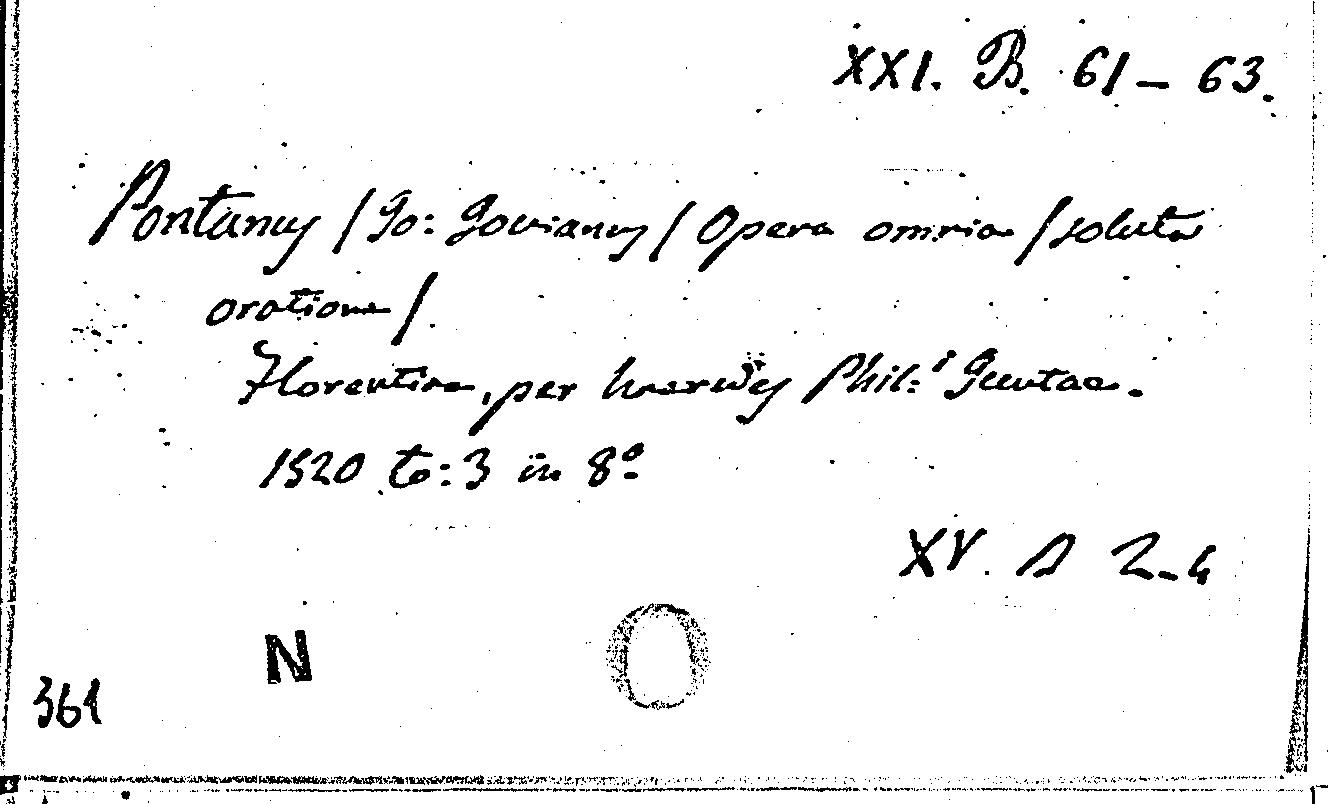 XXI. B. 61 – 63.
Pontanus /Jo: Jovianus/ Opera omnia /soluta
oratione/
Florentiae, per haeredes Phil:i Juntae.
1520 to: 3 in 8º
XV. D 2-4
N
361